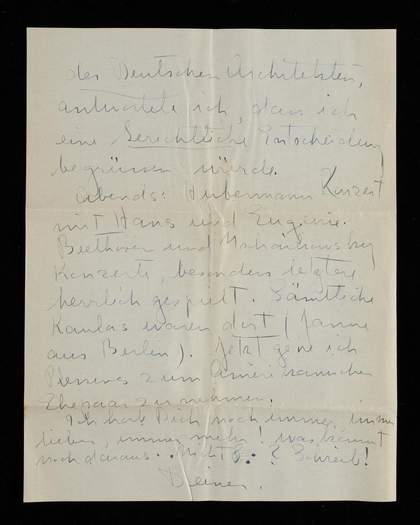 des Deutschen Architekten,
antwortete ich, dass ich
eine gerechtliche Entscheidung
begrüssen würde.
Abends: Hubermann Konzert
mit Hans und Eugenie.
Beethoven und
Konzerte, besonders letztere
herrlich gespielt. Sämtliche
waren dort (
aus Berlin). Jetzt gehe ich
zum Amerikanischen
Ehepaar
Ich hab Dich noch immer, immer
lieber, immer mehr! was kommt
noch daraus. ? Schreib!
Deiner.